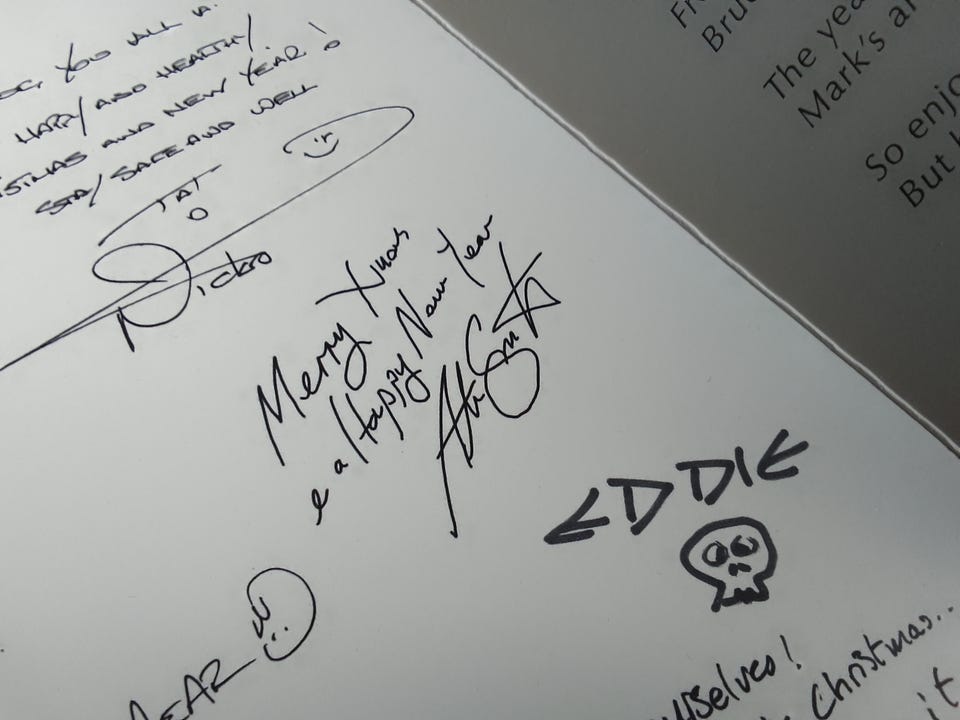 YOU ALL A
HAPPY AND HEALTHY
AND NEW YEAR!
STAY SAFE AND WELL
TAT
Nicko
Merry Xmas
e a Happy New Year
EDDIE
YEAR
Christmas..
it
Fr
Bruc
The yea
Mark's ar
So enjo
But